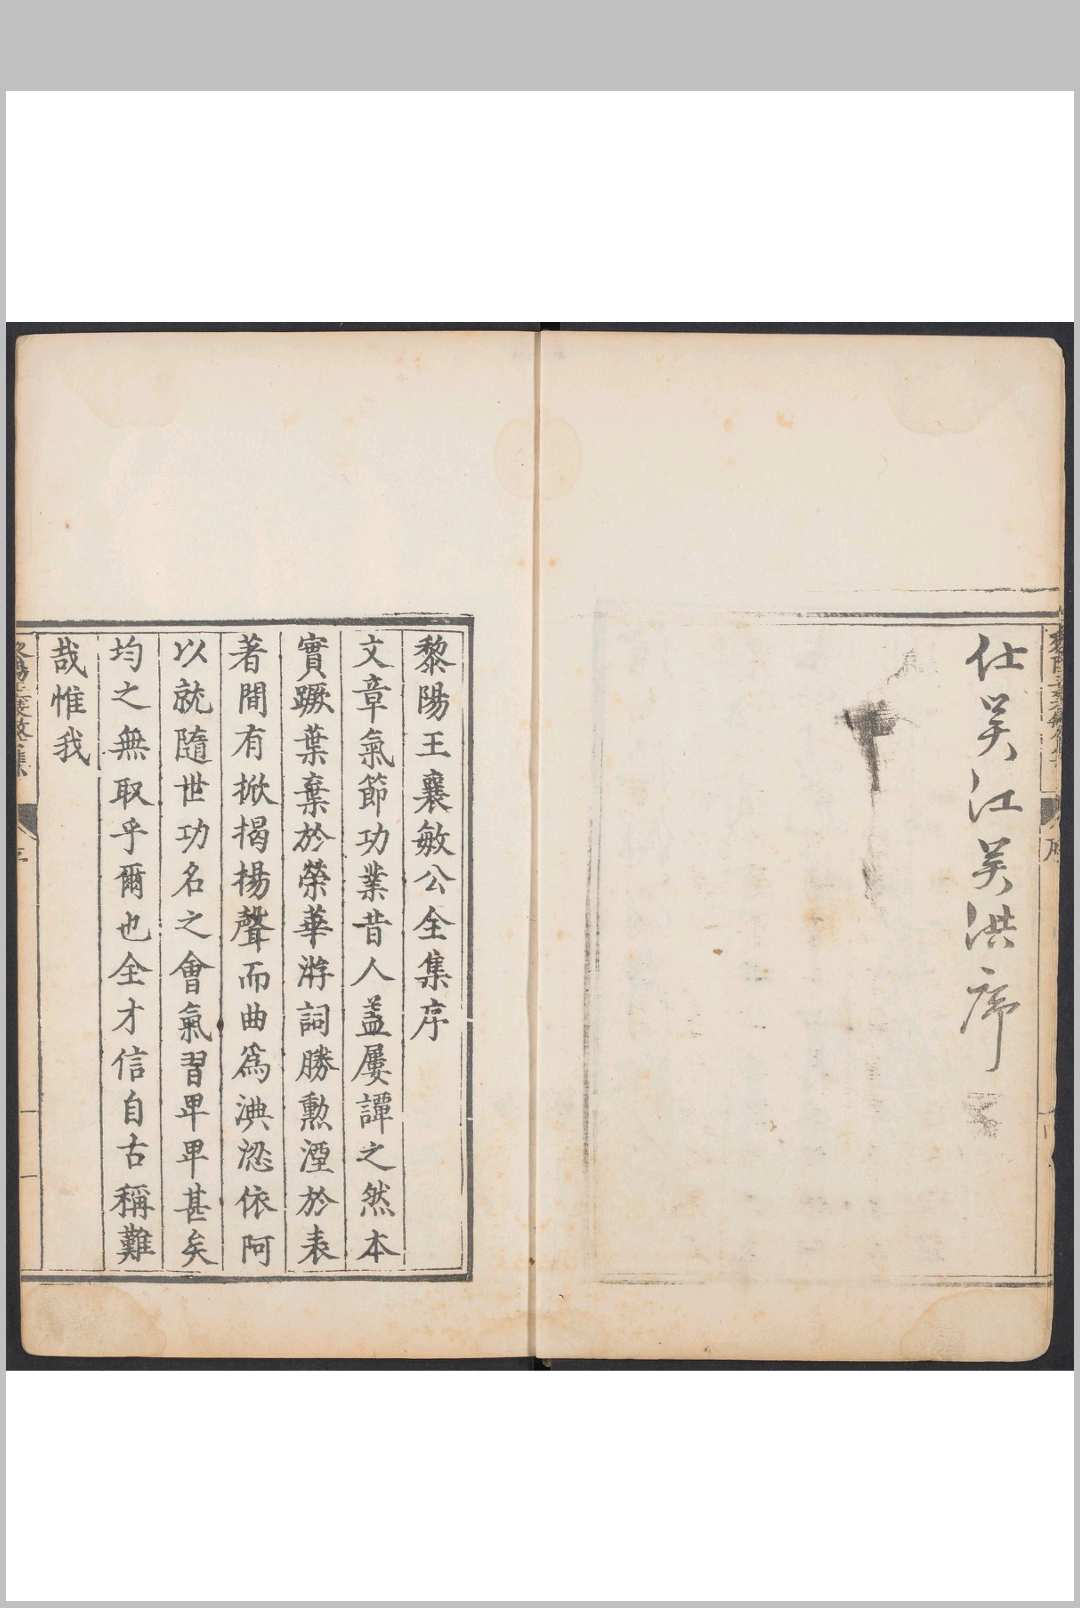 仕吴江吴洪序
黎陽王襄敏公全集序
文章氣節功業昔人盖屢譚之然本
實蹶葉棄於榮華游詞勝勲湮於表
著間有掀揭揚聲而曲為淟涊依阿
以就隨世功名之會氣習卑卑甚矣
均之無取乎爾也全才信自古稱難
哉惟我